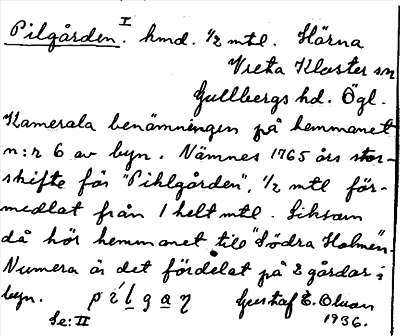 Pilgården. I hmd. 1/2 mtl. Hörna
Vreta Kloster sn
Gullbergs hd. Ögl.
Kamerala benämningen på hemmanet
n:r 6 av byn. Nämnes 1765 års stor-
skifte får "Pihlgården", 1/2 mtl för-
medlat från 1 helt mtl. Liksom
då hör hemmanet till "Södra Holmen".
Numera är det fördelat på 2 gårdar i
byn. pílgaꞃ Gustaf E. Olson
Se: II 1936.